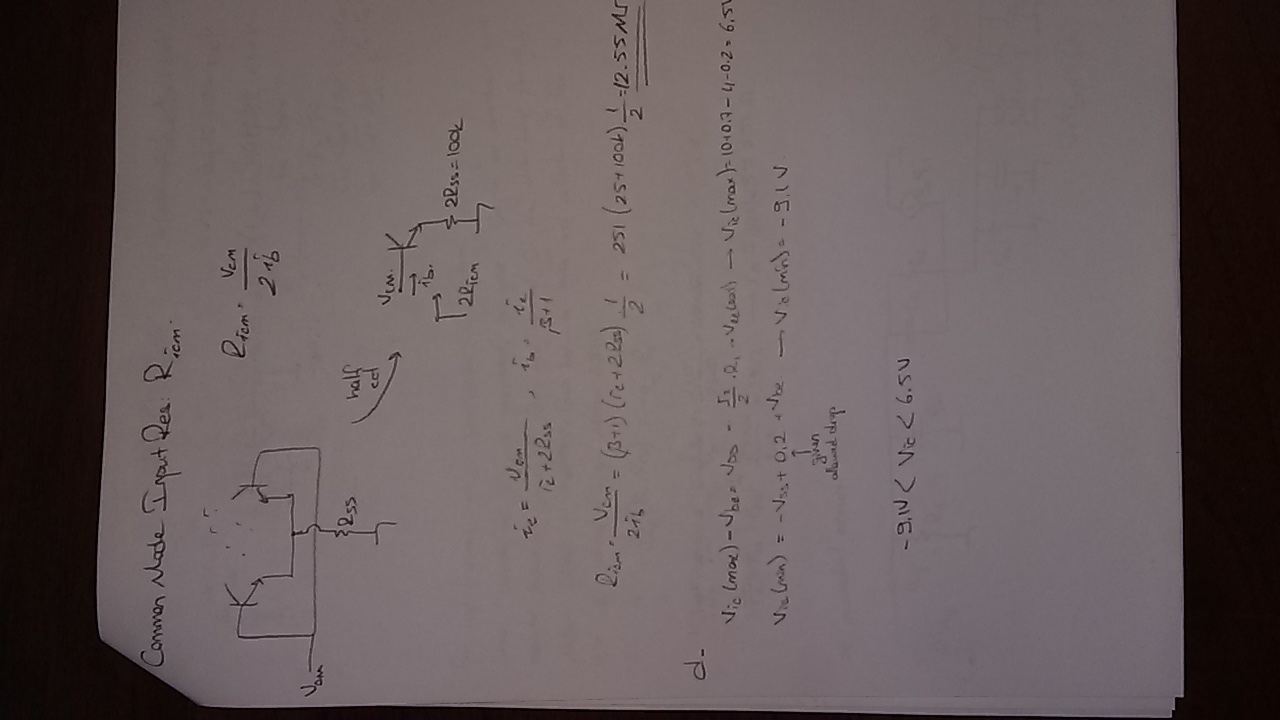 Common Mode Input Res: Ricm.
Ricm = vcm / 2ib
Vcm
Rss
half cct
Vcm.
ib.
2Ricm
2Rss = 100k
ie = vcm / (re + 2Rss) , ib = ie / (β+1)
Ricm = Vcm / 2ib = (β+1) (re + 2Rss) 1/2 = 251 (25 + 100k) 1/2 = 12.55 M
d-
Vic(max) - Vbe = VDD - I/2 . R1 - Vce(sat) → Vic(max) = 10+0.7-4-0.2 = 6.5V
Vic(min) = -Vss + 0.2 + Vbe → Vic(min) = -9.1V
given
allowed drop
-9.1V < Vic < 6.5V